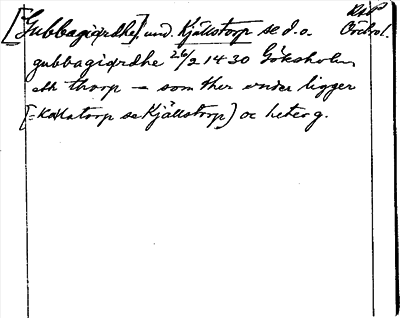 [Gubbagiærdhe] und. Kjällstorp se d. o.
gubbagiærdhe 26/2 1430 Göksholm
ett thorp — som ther under ligger
[= Kællatorp se Kjällstorp) oc heter g.
Örebro l.